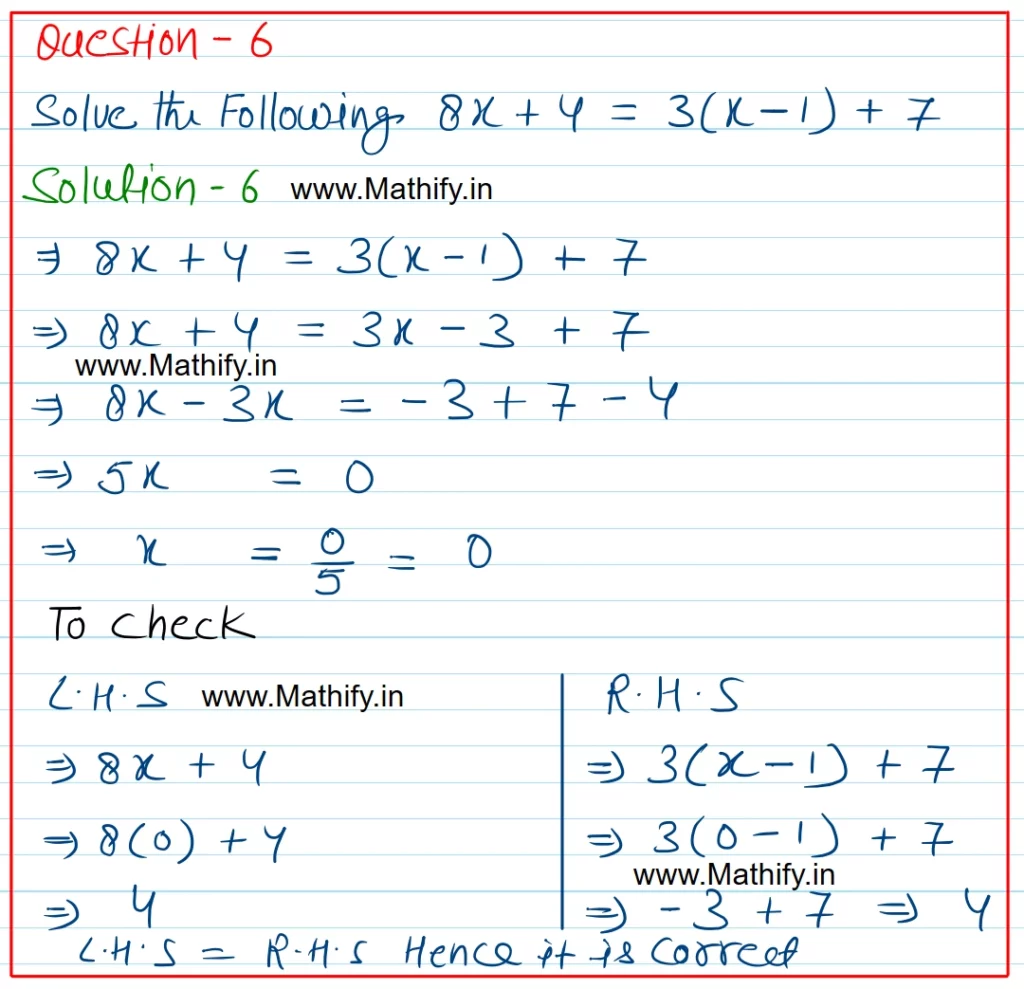 Question - 6
Solve the Following 8x + 4 = 3(x - 1) + 7
Solution - 6 www.Mathify.in
⇒ 8x + 4 = 3(x - 1) + 7
⇒ 8x + 4 = 3x - 3 + 7
www.Mathify.in
⇒ 8x - 3x = -3 + 7 - 4
⇒ 5x = 0
⇒ x = 0/5 = 0
To check
L.H.S www.Mathify.in
⇒ 8x + 4
⇒ 8(0) + 4
⇒ 4
R.H.S
⇒ 3(x - 1) + 7
⇒ 3(0 - 1) + 7
www.Mathify.in
⇒ -3 + 7 ⇒ 4
L.H.S = R.H.S Hence it is correct